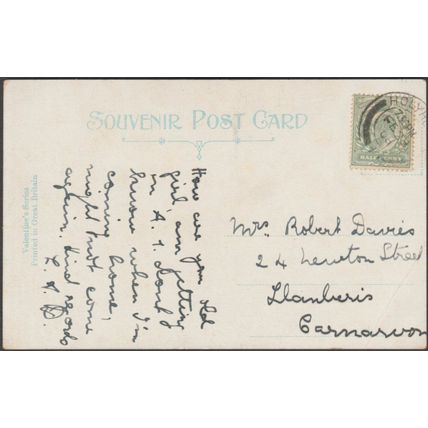 SOUVENIR POST CARD
Valentine's Series
Printed in Great Britain
HOLYH
HALFPENNY
How are you old
girl, am getting
on A.1. dont
know when I'm
coming home,
might not come
again. Kind regards
Mrs Robert Davies
24 Newton Street
Llanberis
Carnarvon